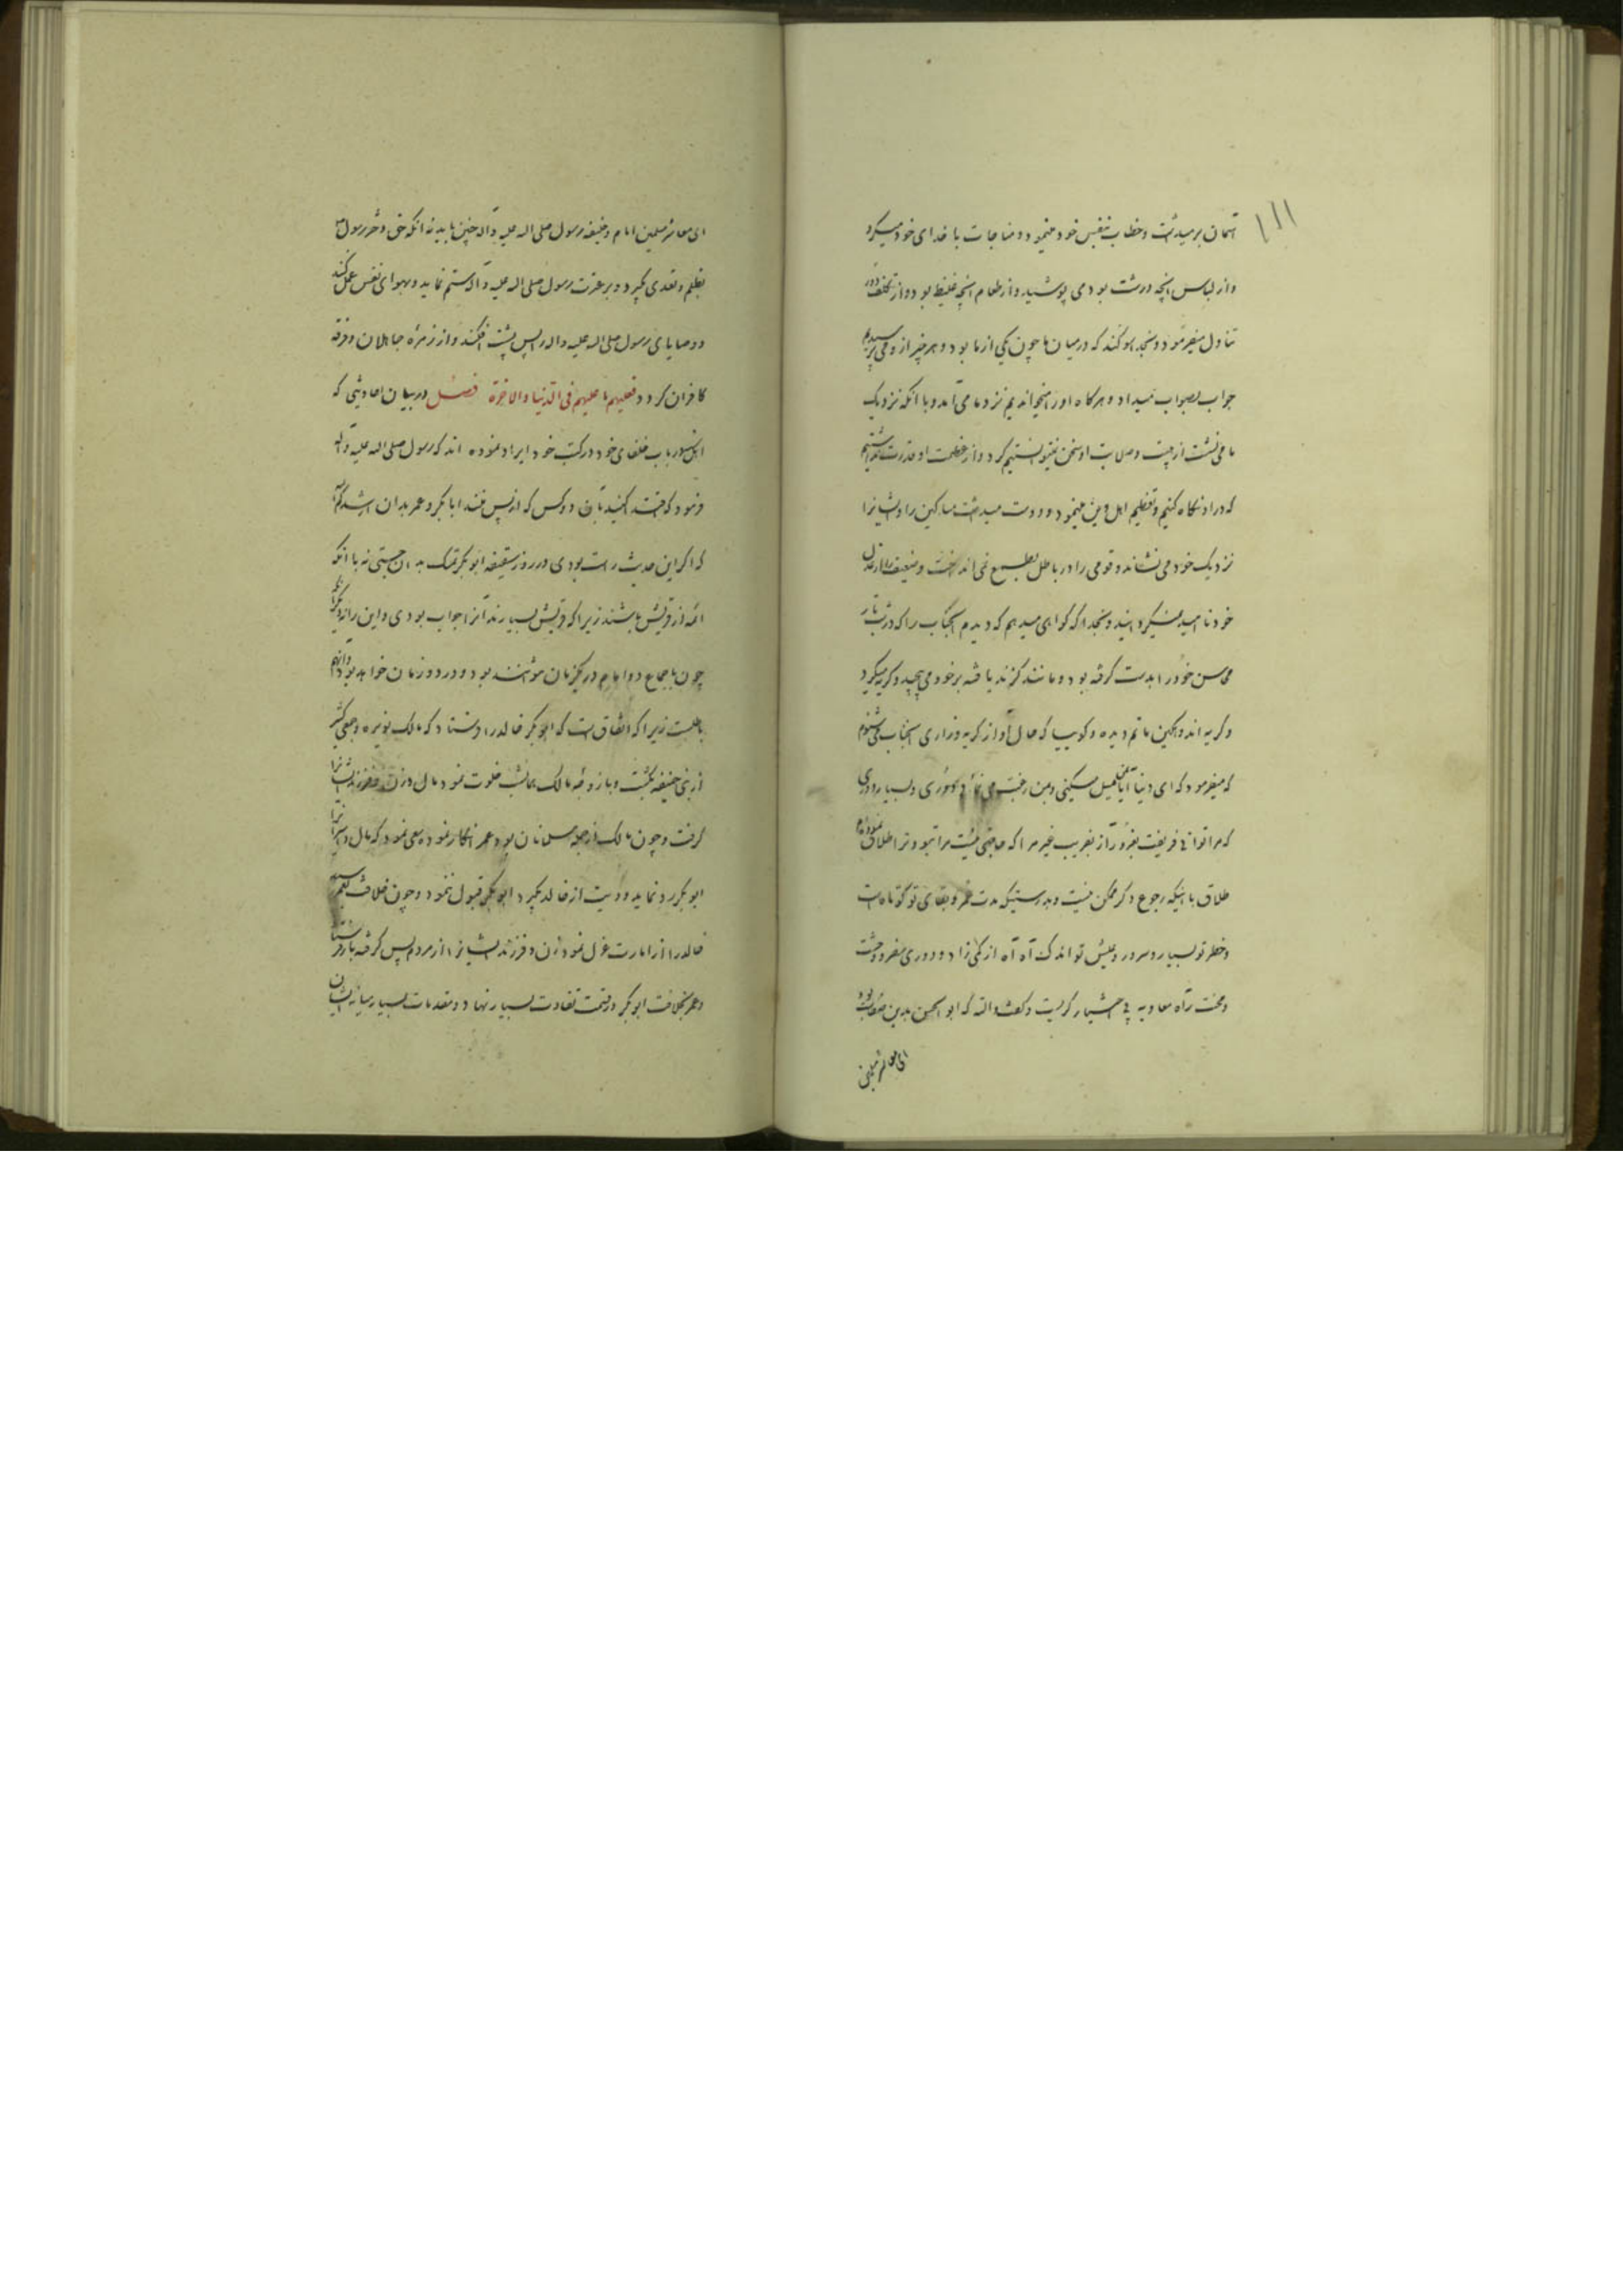 ۱۱۱
آسمان برمیداشت و خطاب بنفس خود مینمود و مناجات با خدای خود میکرد
و از لباس آنچه درشت بود می پوشید و از طعام آنچه غلیظ بود و از تکلف دور
تناول میفرمود و بخدا سوگند که در میان ما چون یکی از ما بود و هر چیز از وی می پرسیدیم
جواب بصواب میداد و هرگاه او را میخواندیم نزد ما می آمد و با آنکه نزدیک
ما می نشست از هیبت و صلابت او سخن نمیتوانستیم کرد و از عظمت او قدرت نداشتیم
که در او نگاه کنیم و تعظیم اهل دین مینمود و دوست میداشت مساکین را و ایشانرا
نزدیک خود می نشاند و قومی را در باطل بطمع نمی انداخت و ضعیف را از عدل
خود ناامید نمیگردانید و بخدا که گواهی میدهم که دیدم آنجناب را که در شب تار
محاسن خود را بدست گرفته بود و مانند گزند یافته بر خود می پیچید و گریه میکرد
و گریه اندوهگین ماتم دیده و گوییا که حال آواز گریه و زاری آنجناب می شنوم
که میفرمود که ای دنیا آیا میل میکنی و بمن رغبت می نمائی دوری و بسیار دوری
که مرا توانی فریفت بغرور آن بفریب غیر مرا که حاجتی نیست مرا بتو و ترا طلاق نمودم
طلاق بائنیکه رجوع دگر ممکن نیست و بدرستیکه مدت عمر و بقای تو کوتاه است
و خطر تو بسیار و سرور و عیش تو اندک آه آه از کمی زاد و دوری سفر و وحشت
و محنت راه معاویه بی اختیار گریست و گفت والله که ابوالحسن بدین صفات بود
ای معاشر مسلمین
ای معاشر مسلمین امام و خلیفه رسول صلی الله علیه و آله چنین باید نه آنکه حق دختر رسول
بظلم و تعدی گیرد و بر عترت رسول صلی الله علیه و آله ستم نماید و بهوای نفس عمل کند
و وصایای رسول صلی الله علیه و آله را پس پشت افکند و از زمره جاهلان و فرقه
کافران گردد فعلیهم ما علیهم فی الدنیا والاخرة فصل در بیان احادیثی که
اهل در باب خلفای خود در کتب خود ایراد نموده اند که رسول صلی الله علیه و آله
فرمود که اقتدا کنید بآن دو کس که از پس منند ابابکر و عمر بدان
که اگر این حدیث راست بودی در روز سقیفه ابوبکر تمسک بدان جستی نه با آنکه
ائمه از قریش باشند زیرا که قریش بسیارند آنرا جواب بودی و این را نه دیگر آنکه
چون باجماع دو امام در یکزمان نتوانند بود و در دو زمان خواهد بود و آنهم
باطلست زیرا که اتفاق است که ابوبکر خالد را فرستاد که مالک نویره و جمعی کثیر
از بنی حنیفه بکشت و با زوجه مالک همانشب خلوت نمود مال و زن و فرزند ایشانرا
گرفت و چون مالک از جمله مسلمانان بود عمر انکار نمود و سعی نمود که مال و اسیرانرا
ابوبکر رد نماید و دیت از خالد بگیرد ابوبکر قبول ننمود و چون خلافت بعمر رسید
خالد را از امارت عزل نمود زن و فرزند ایشانرا از مردم پس گرفته باز فرستاد
و عمر بخلافت ابوبکر در قسمت تفاوت بسیار نهاد و مقدمات بسیار میانه ایشان